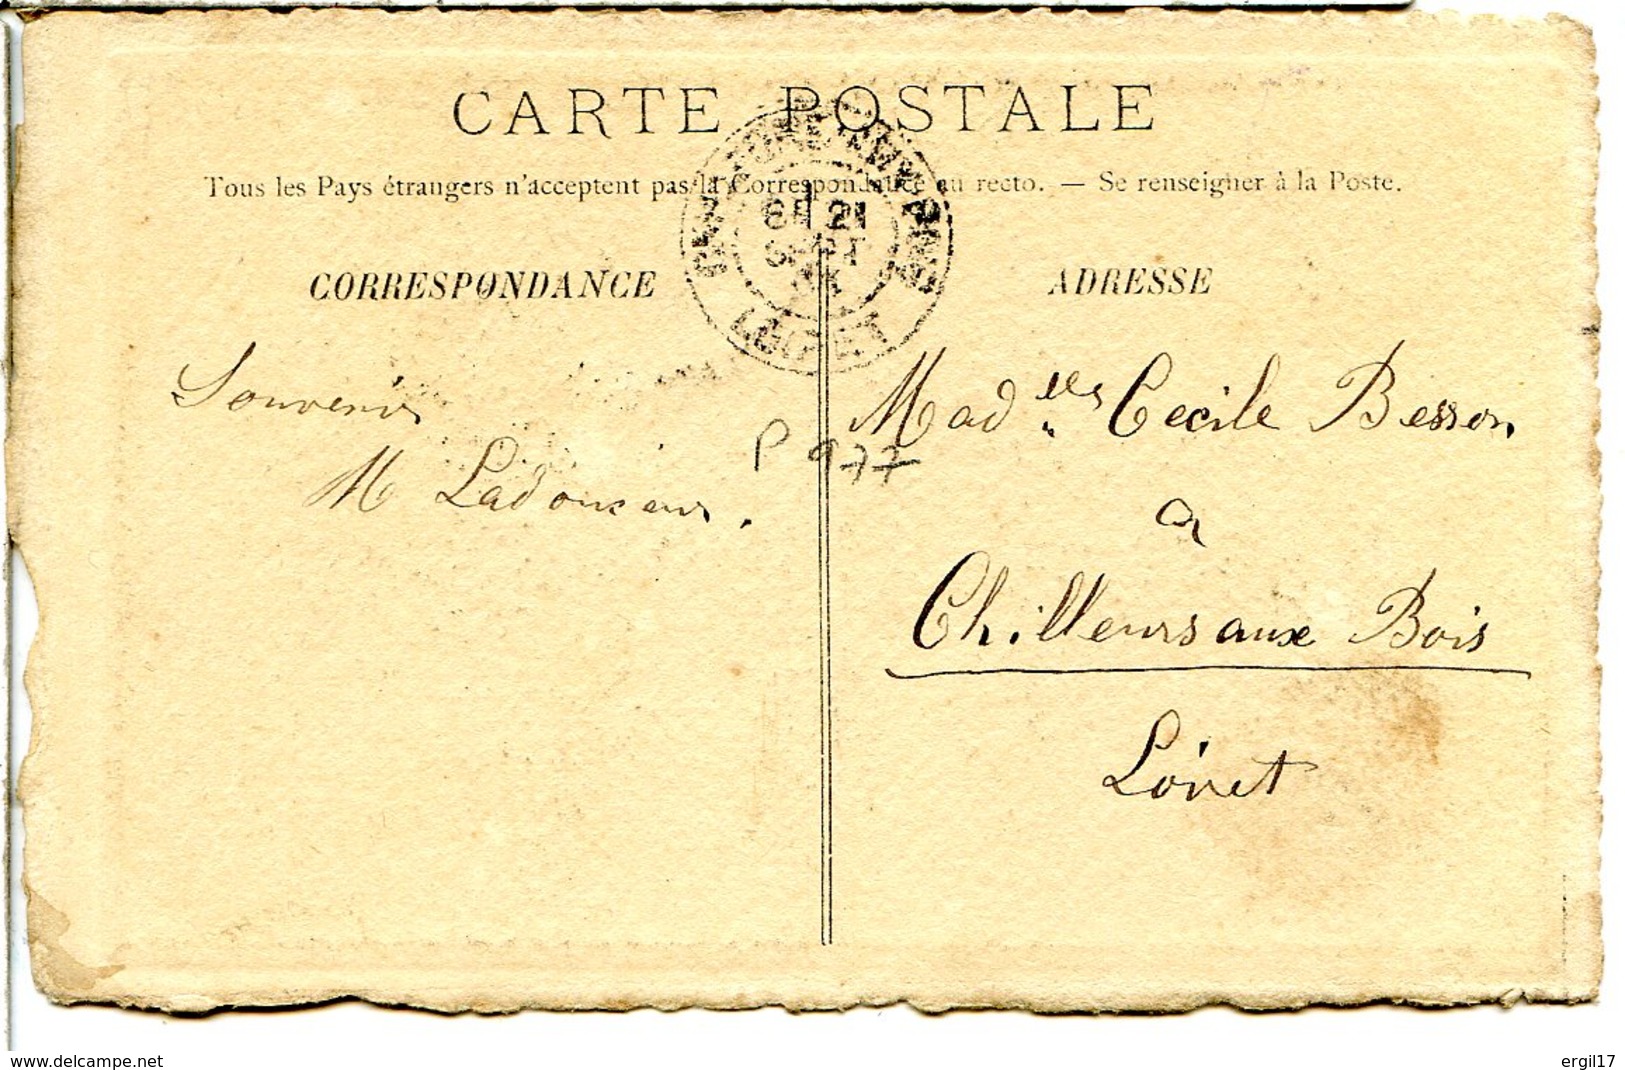 CARTE POSTALE
Tous les Pays étrangers n'acceptent pas la Correspondance au recto. — Se renseigner à la Poste.
CORRESPONDANCE
ADRESSE
21
SEPT
LOIRET
Souvenir
M Ladouceur.
P 977
Mad lles Cecile Besson
a
Chilleurs aux Bois
Loiret
www.delcampe.net
ergil17